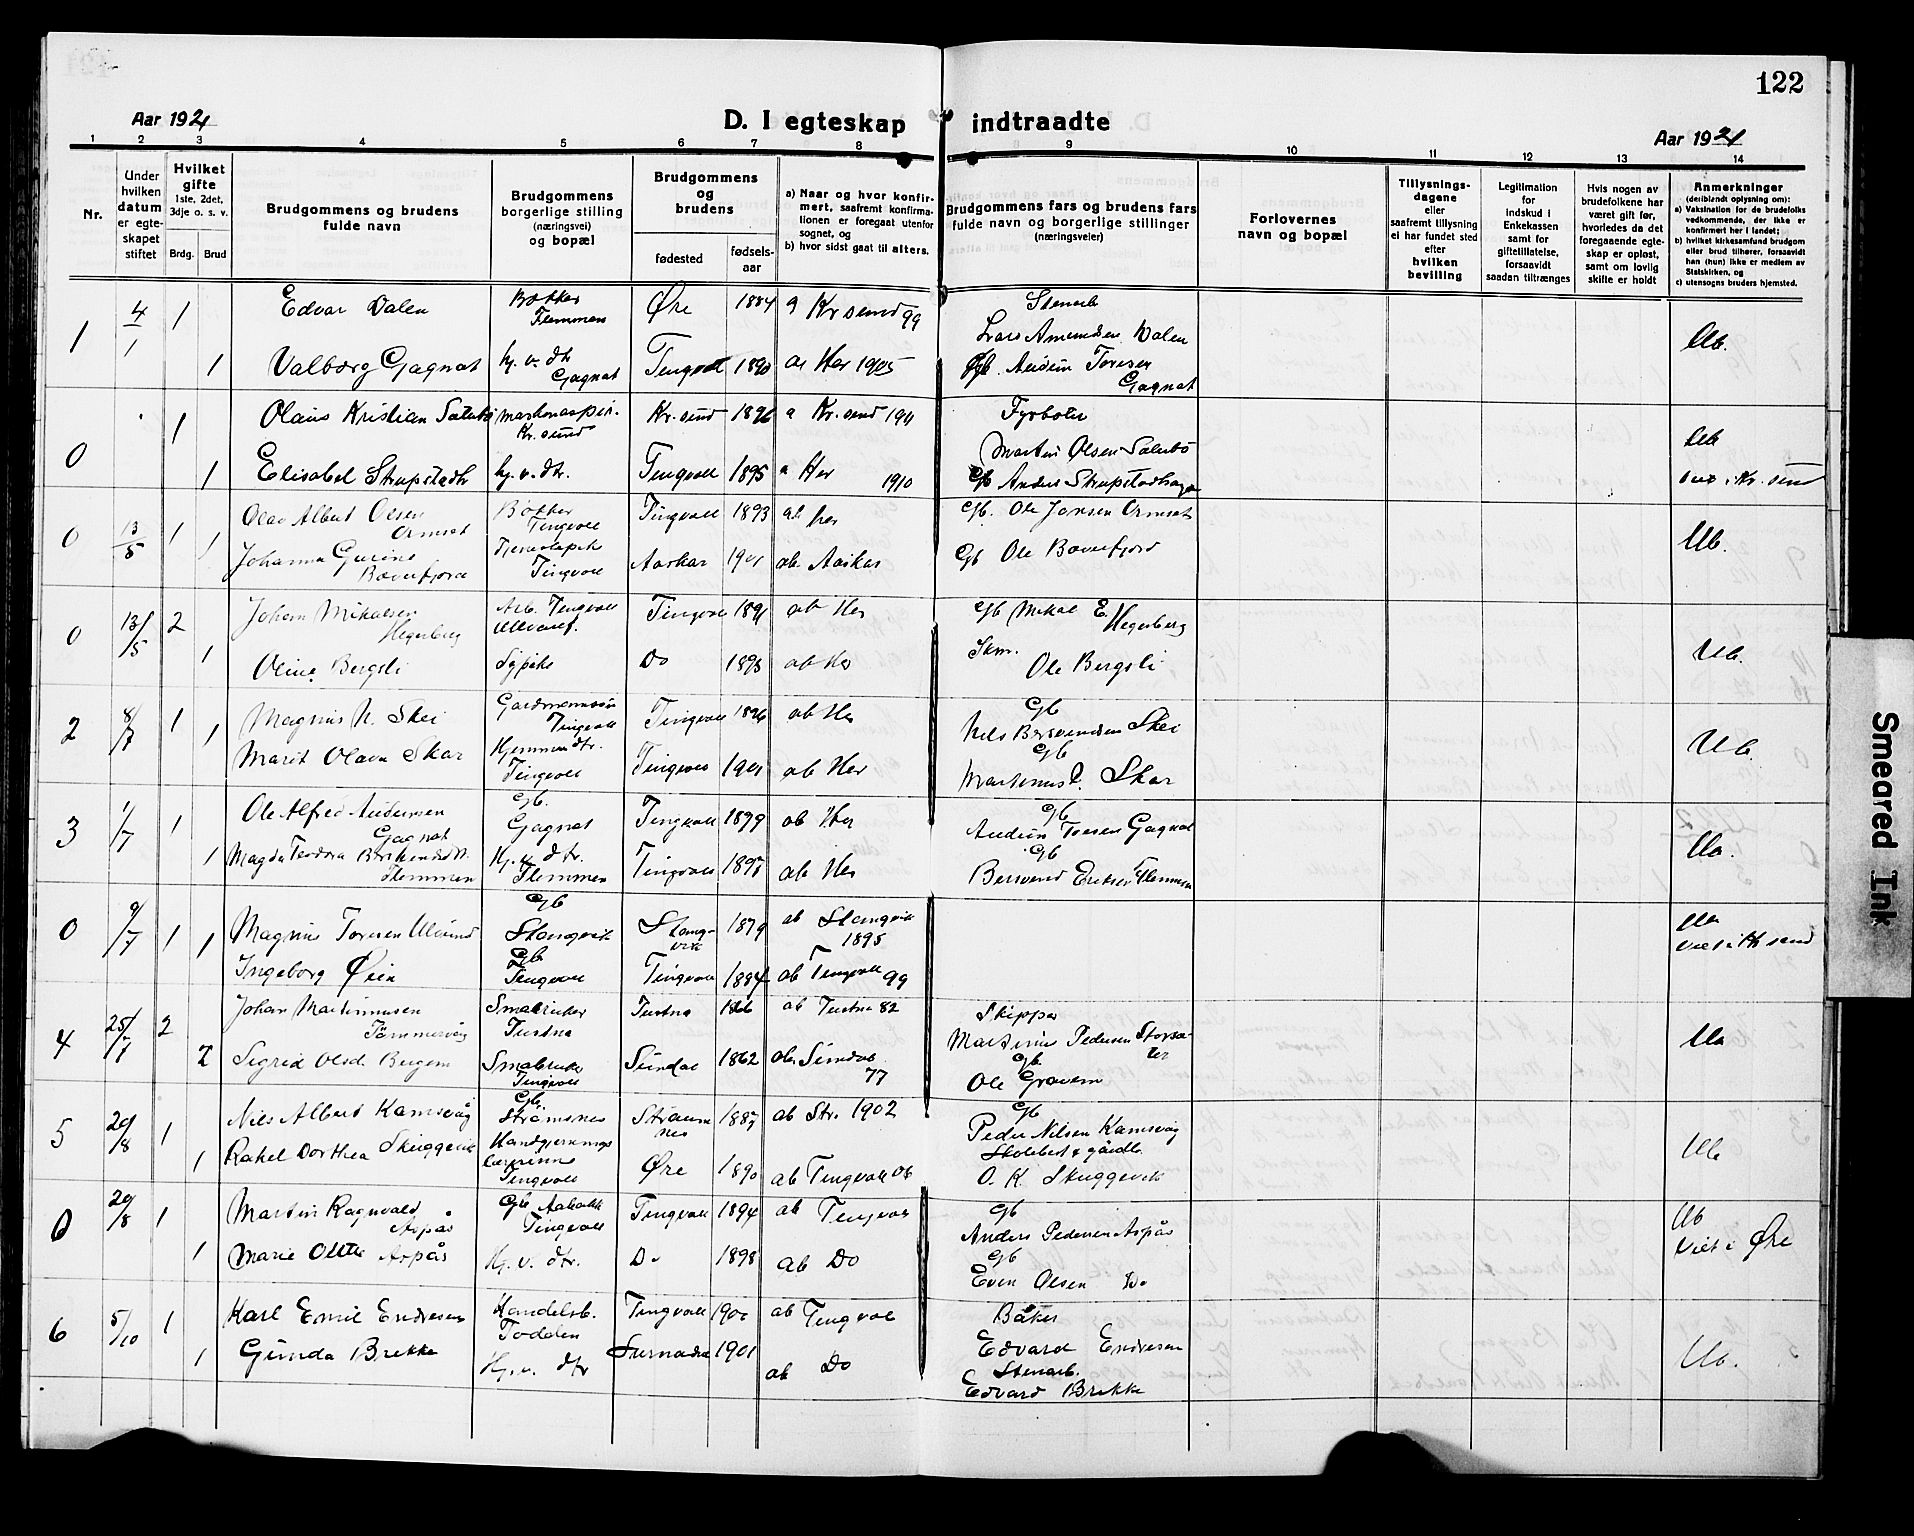 122
Aar 1921
D. I egteskap indtraadte
Aar 1921
1 2 3 4 5 6 7 8 9 10 11 12 13 14
Nr.
Under hvilken datum er egteskapet stiftet
Hvilket gifte 1ste, 2det, 3dje o. s. v.
Brdg. Brud
Brudgommens og brudens fulde navn
Brudgommens borgerlige stilling (næringsvei) og bopæl
Brudgommens og brudens
fødested
fødselsaar
a) Naar og hvor konfirmert, saafremt konfirmationen er foregaat utenfor sognet, og
b) hvor sidst gaat til alters.
Brudgommens fars og brudens fars fulde navn og borgerlige stillinger (næringsveier)
Forlovernes navn og bopæl
Tillysningsdagene eller saafremt tillysning ei har fundet sted efter hvilken bevilling
Legitimation for indskud i Enkekassen samt for giftetillatelse, forsaavidt saadan tiltrænges
Hvis nogen av brudefolkene har været gift før, hvorledes da det foregaaende egteskap er opløst, samt om lovlig skifte er holdt
Anmerkninger
(deriblandt oplysning om):
a) Vaksination for de brudefolks vedkommende, der ikke er konfirmert her i landet;
b) hvilket kirkesamfund brudgom eller brud tilhører, forsaavidt han (hun) ikke er medlem av Statskirken, og
c) utensogns bruders hjemsted.
1 4/1 1 Edvar Dalen Bøkker Flemmen Øre 1884 a Kr sund 99 Stenarb Lars Amundsen Dalen Ub.
1 Valborg Gagnat hj. v. dtr Gagnat Tingvoll 1890 a Her 1905 Gb. Audun Toresen Gagnat
0 1 Olaus Kristian Saltbø Kr. sund Kr. sund 1896 a Kr. sund 1911 Fyrbøter Martin Olsen Saltbø Ub
1 Elisabel Strupstadtr hj. v. dtr. Tingvoll 1895 a Her 1910 Gb Anders Strupstadhagen viet i Kr. sund
0 13/5 1 Olav Albert Olsen Ormset Bøkker Tingvoll Tingvoll 1893 ab her Gb. Ole Jonsen Ormset Ub.
1 Johanna Gurine Bøverfjord Tjenestepike Tingvoll Aaskar 1901 ab Aaskar Gb Ole Bøverfjord
0 13/5 2 Johan Mikalsen Hegerberg Arb. Tingvoll Tingvoll 1891 ab Her Gb Mikal E. Hegerberg Ub.
1 Oline Bergsli Sypike Do 1898 ab Her Skm. Ole Bergsli
2 8/7 1 Magnus N. Skei Gardmannssøn Tingvoll Tingvoll 1896 ab Her Gb Nils Bersvendsen Skei Ub.
1 Marit Olava Skar Hjemmendtr. Tingvoll Tingvoll 1901 ab Her Gb Martinus O. Skar
3 1/7 1 Ole Alfred Audunsen Gagnat Gb. Gagnat Tingvoll 1899 ab Her Gb Audun Toresen Gagnat Ub
1 Magda Teodora Flemmen Hj. v. dtr. Flemmen Tingvoll 1897 ab Her Gb Bersvend Eriksen Flemmen
0 9/7 1 1 Magnus Toresen Ulvund Gb Stangvik Stangvik 1879 ab Stangvik 1895 Ub viet i Kr sund
Ingeborg Øien Gb Tingvoll Tingvoll 1884 ab Tingvoll 99
4 25/7 2 Johan Martinusen Tømmervåg Smabruker Tustna Tustna ab Tustna 82 Skipper Martinus Pedersen Storsæter Ub
2 Sigrid Olsd. Bergem Smabruker Tingvoll Sundal 1862 ab Sundal 77 Gb. Ole Gravem
5 20/8 1 Nils Albert Kamsvåg Gb. Strømsnes Straumsnes 1887 ab Str. 1902 Gb Peder Nilsen Kamsvåg Ub
1 Rakel Dorthea Skuggevik Handgjerningslærerinne Tingvoll Øre 1890 ab Tingvoll 06 O. K. Skuggevik
0 20/8 1 Martin Ragnvald Aspås Gb Tingvoll Tingvoll 1894 ab Tingvoll Gb Anders Pedersen Aspås Ub Viet i Øre
1 Marie Aspås Hj. v. dtr. Do 1898 ab Do Gb Even Olsen Do
6 5/10 1 Karl Emil Endresen Handelsb. Todden Tingvoll 1900 ab Tingvoll Baker Edvard Endresen Ub.
1 Gunda Brekke Hj. v. dtr Surnadal 1901 ab Do Stenarb. Edvard Brekke
Smeared Ink